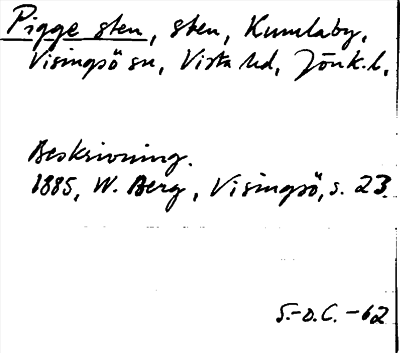 Pigge sten, sten, Kumlaby,
Visingsö sn, Vista hd, Jönk. l.
Beskrivning.
1885, W. Berg, Visingsö, s. 23.
S.-O.C. -62